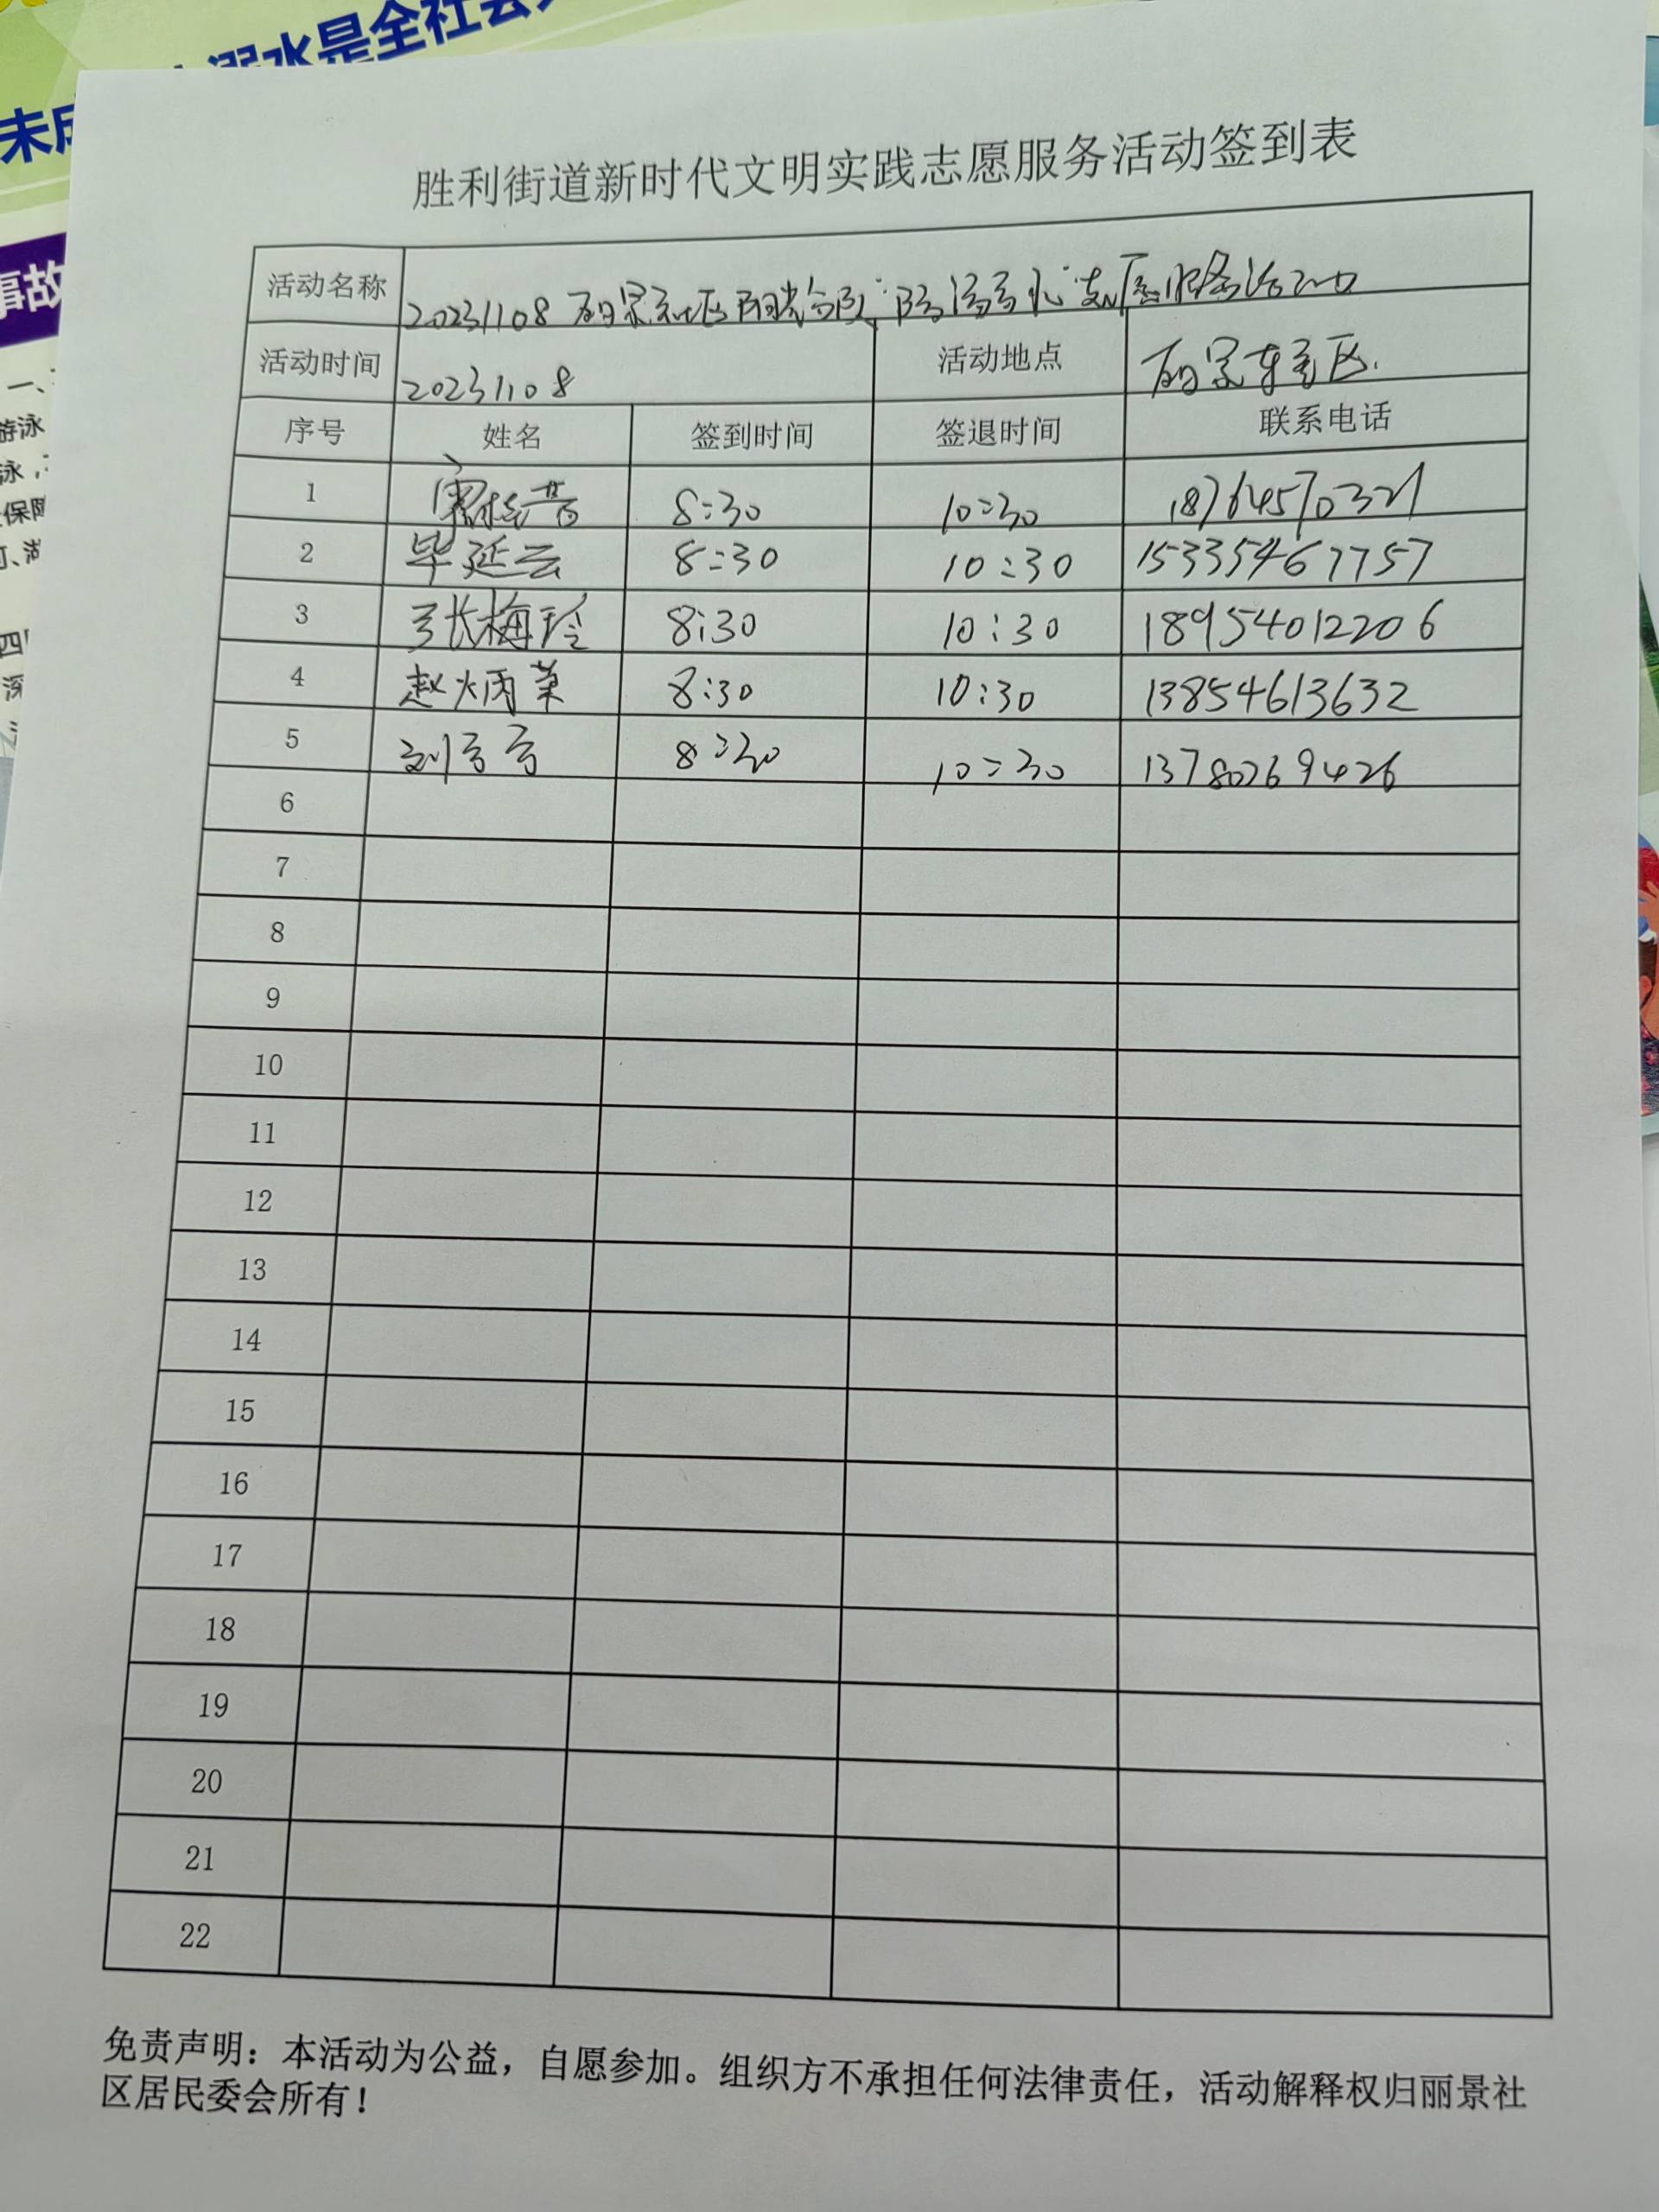 溺水是全社会
未成
事故
一、
游泳
泳，
保障
四
深
胜利街道新时代文明实践志愿服务活动签到表
活动名称 20231108 丽景社区阳光分队 志愿服务活动
活动时间 20231108 活动地点 丽景东区.
序号 姓名 签到时间 签退时间 联系电话
1 8:30 10:30 18764570321
2 毕延云 8:30 10:30 15335467757
3 张梅玲 8:30 10:30 18954012206
4 赵炳菊 8:30 10:30 13854613632
5 刘 8:30 10:30 13780769426
6
7
8
9
10
11
12
13
14
15
16
17
18
19
20
21
22
免责声明：本活动为公益，自愿参加。组织方不承担任何法律责任，活动解释权归丽景社
区居民委会所有！